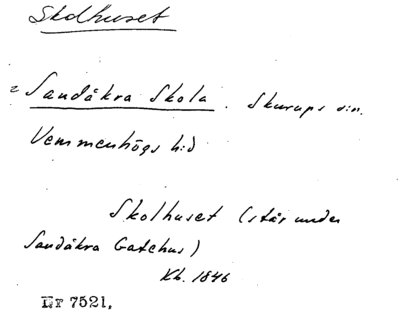 Skolhuset
= Sandåkra Skola. Skurups sn.
Vemmenhögs hd
Skolhuset (står under
Sandåkra Gatehus)
Kb. 1846
Er 7521.